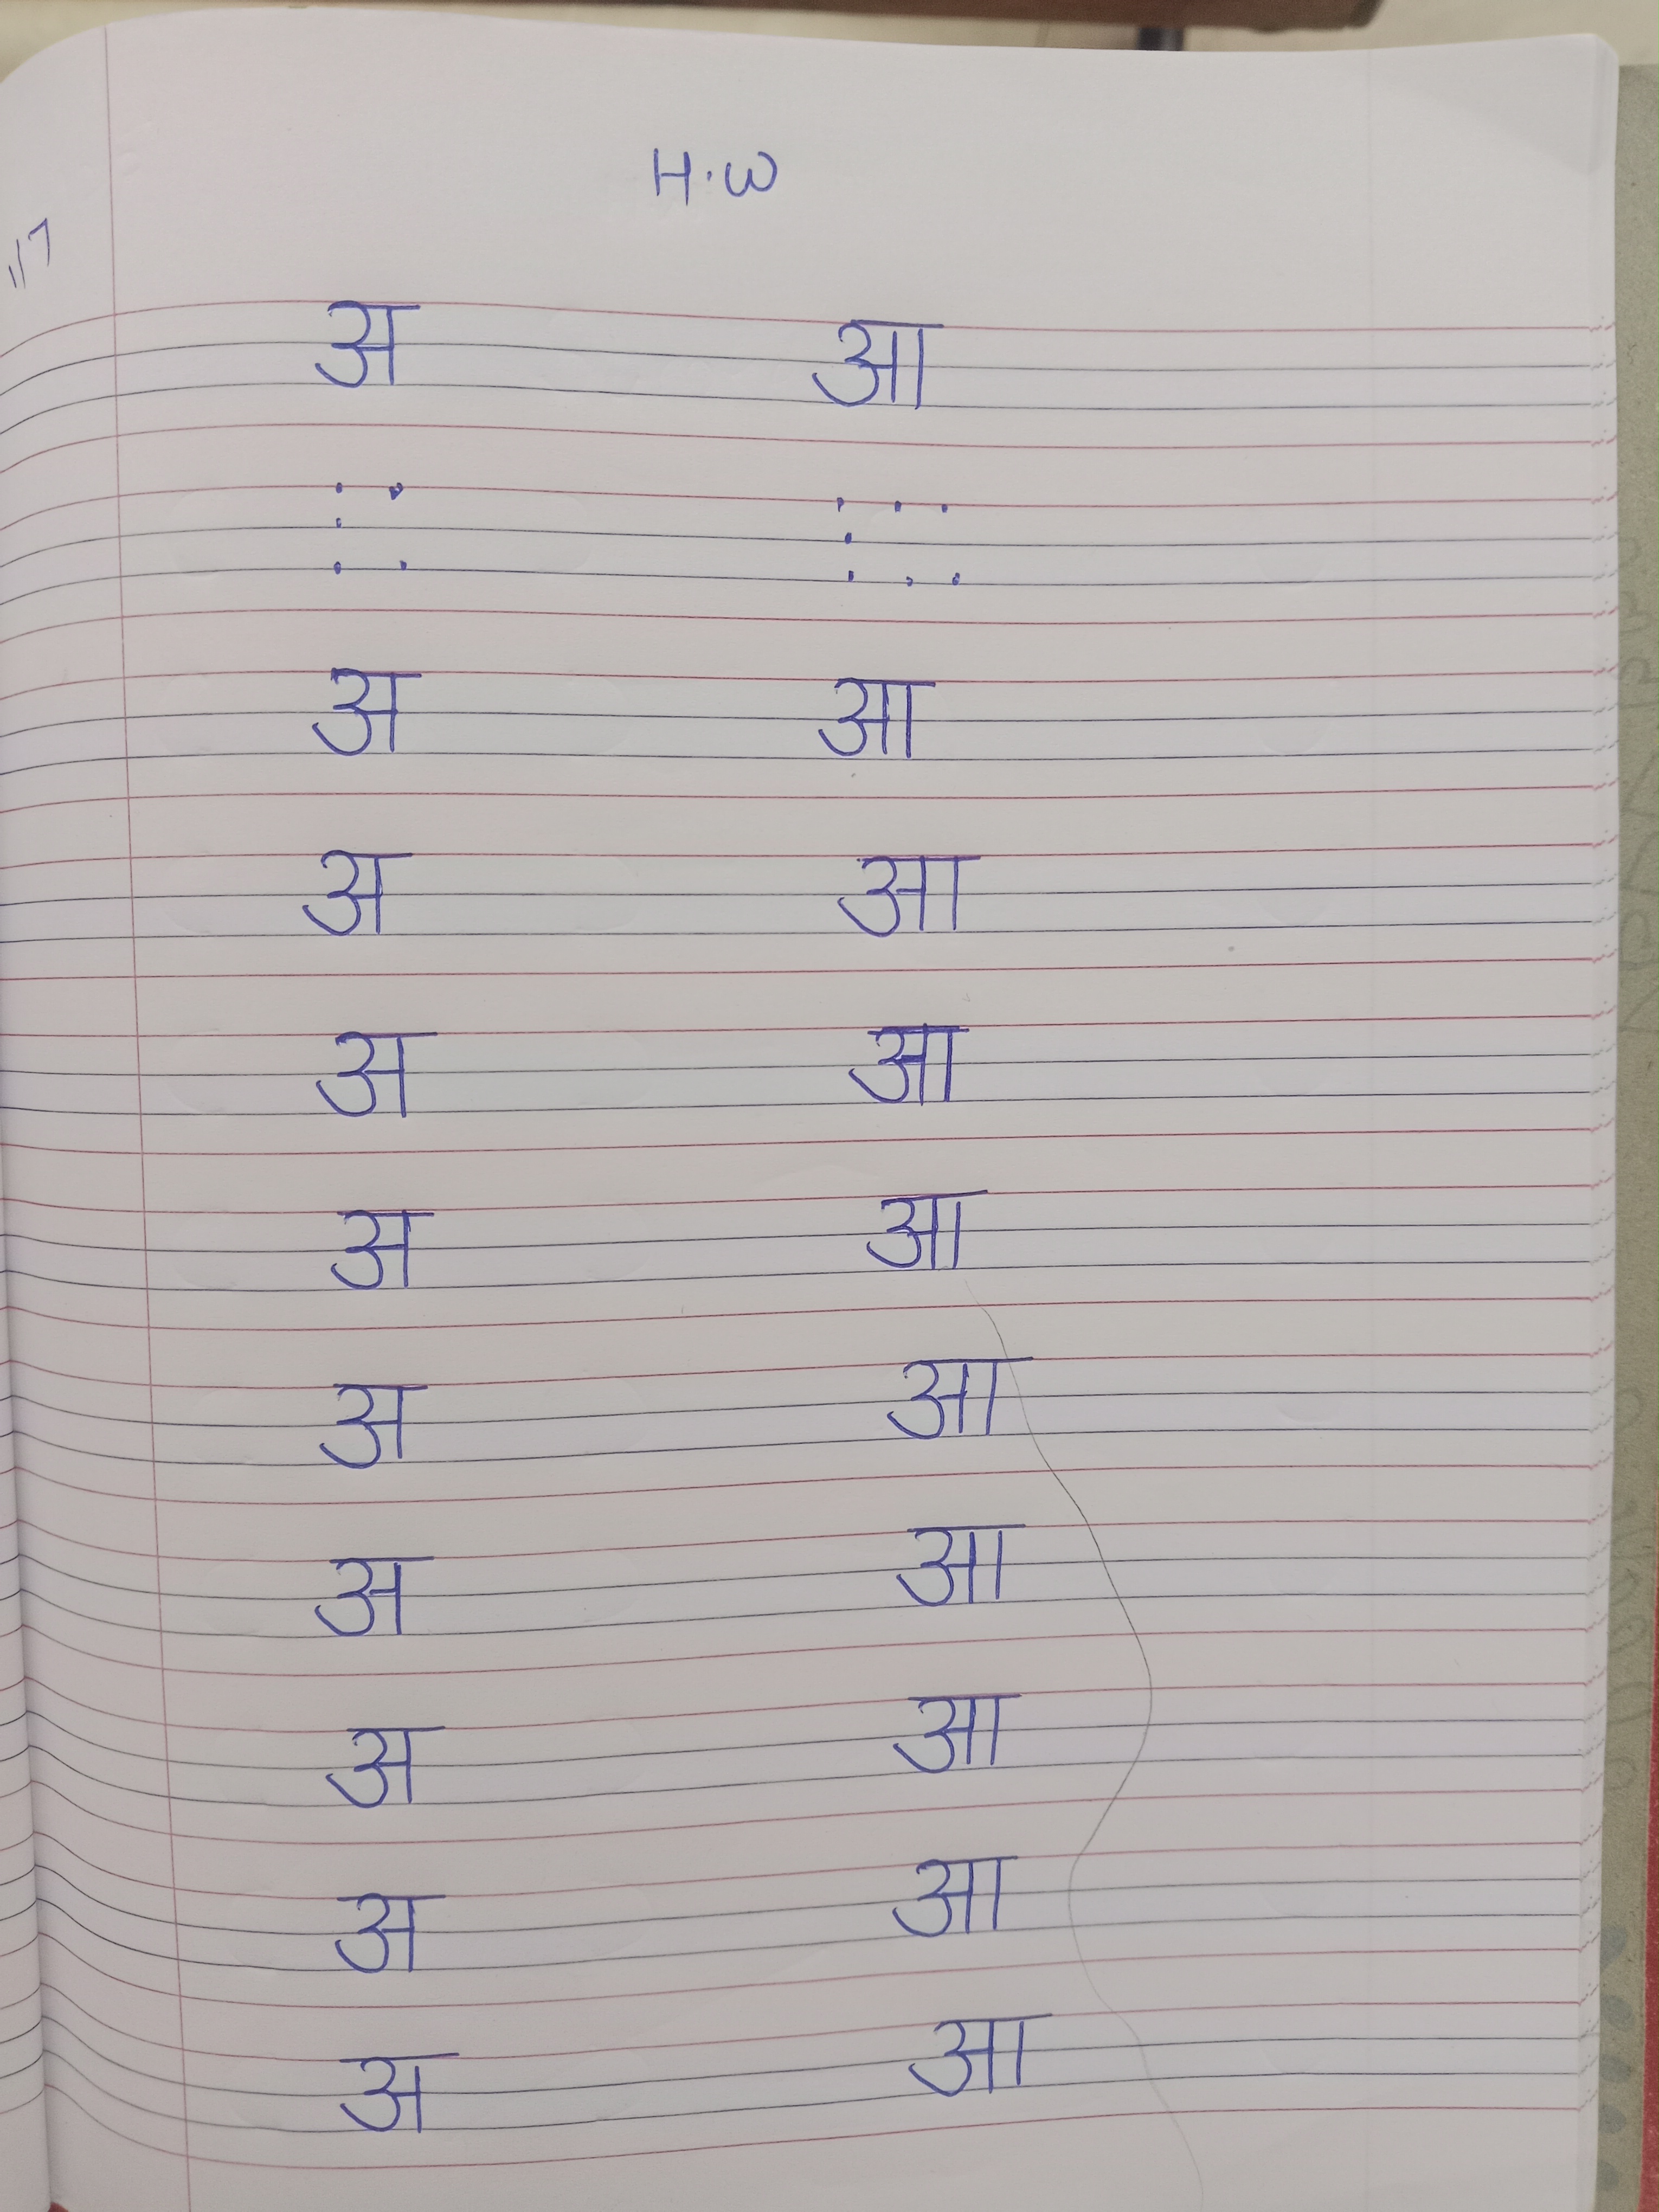 H.W
अ आ
अ आ
अ आ
अ आ
अ आ
अ आ
अ आ
अ आ
अ आ
अ आ